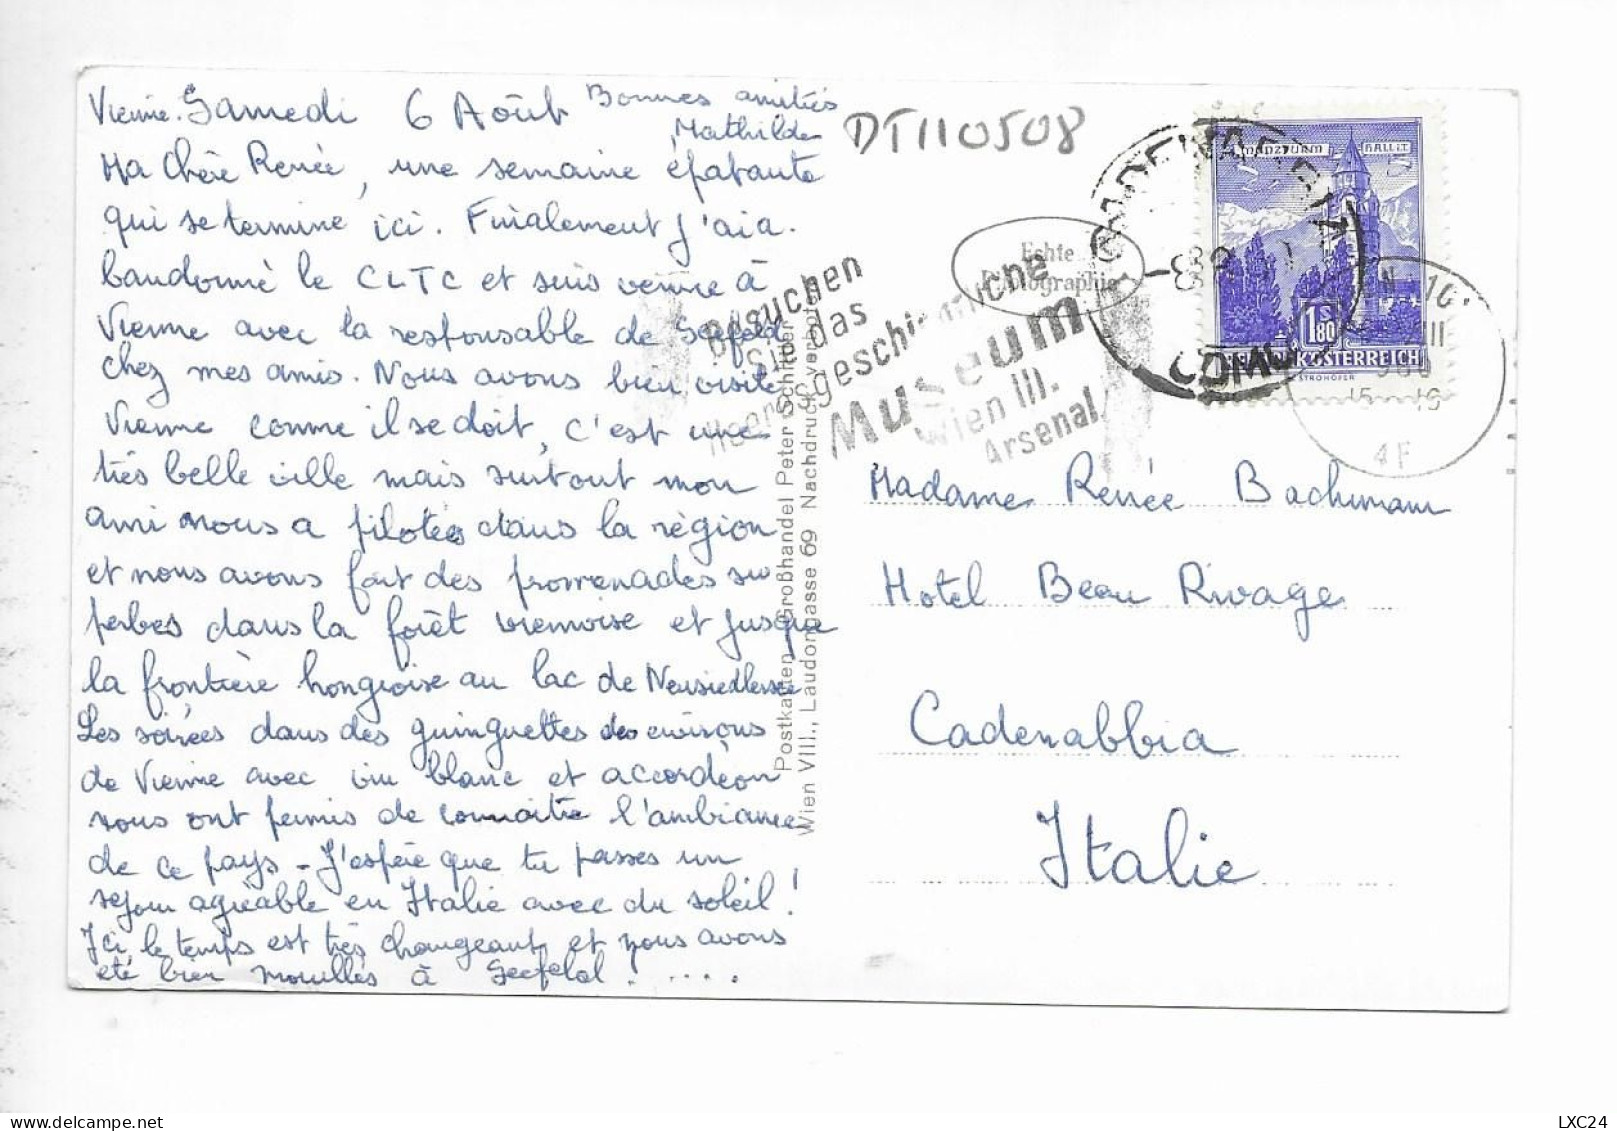 Vienne. Samedi 6 Août Bonnes amitiés
Mathilde
Ma Chère Renée, une semaine épatante
qui se termine ici. Finalement j'ai a.
bandonné le CLTC et suis venue à
Vienne avec la responsable de Seefeld
chez mes amis. Nous avons bien visité
Vienne comme il se doit, c'est une
très belle ville mais surtout mon
ami nous a pilotées dans la région
et nous avons fait des promenades su
perbes dans la forêt viennoise et jusqu'a
la frontière hongroise au lac de Neusiedlersee
Les soirées dans des guinguettes des environs
de Vienne avec vin blanc et accordéon
nous ont permis de connaitre l'ambiance
de ce pays - J'espère que tu passes un
sejour agréable en Italie avec du soleil!
Ici, le temps est très changeant et nous avons
été bien mouillés à Seefeld! ....
DT110508
Postkarten Großhandel Peter Schiller
Wien VIII., Laudongasse 69 Nachdruck verboten
Echte
Photographie
Besuchen
Sie das
Heeresgeschichtliche
Museum
Wien III.
Arsenal
COMO
MÜNZTURM HALL i.T.
1.80
REPUBLIK ÖSTERREICH
15 - 16
4F
Madame Renée Bachmann
Hotel Beau Rivage
Cadenabbia
Italie
LXC24